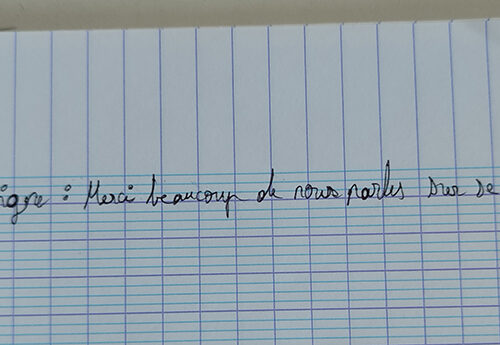 igre : Merci beaucoup de nous parler sur se